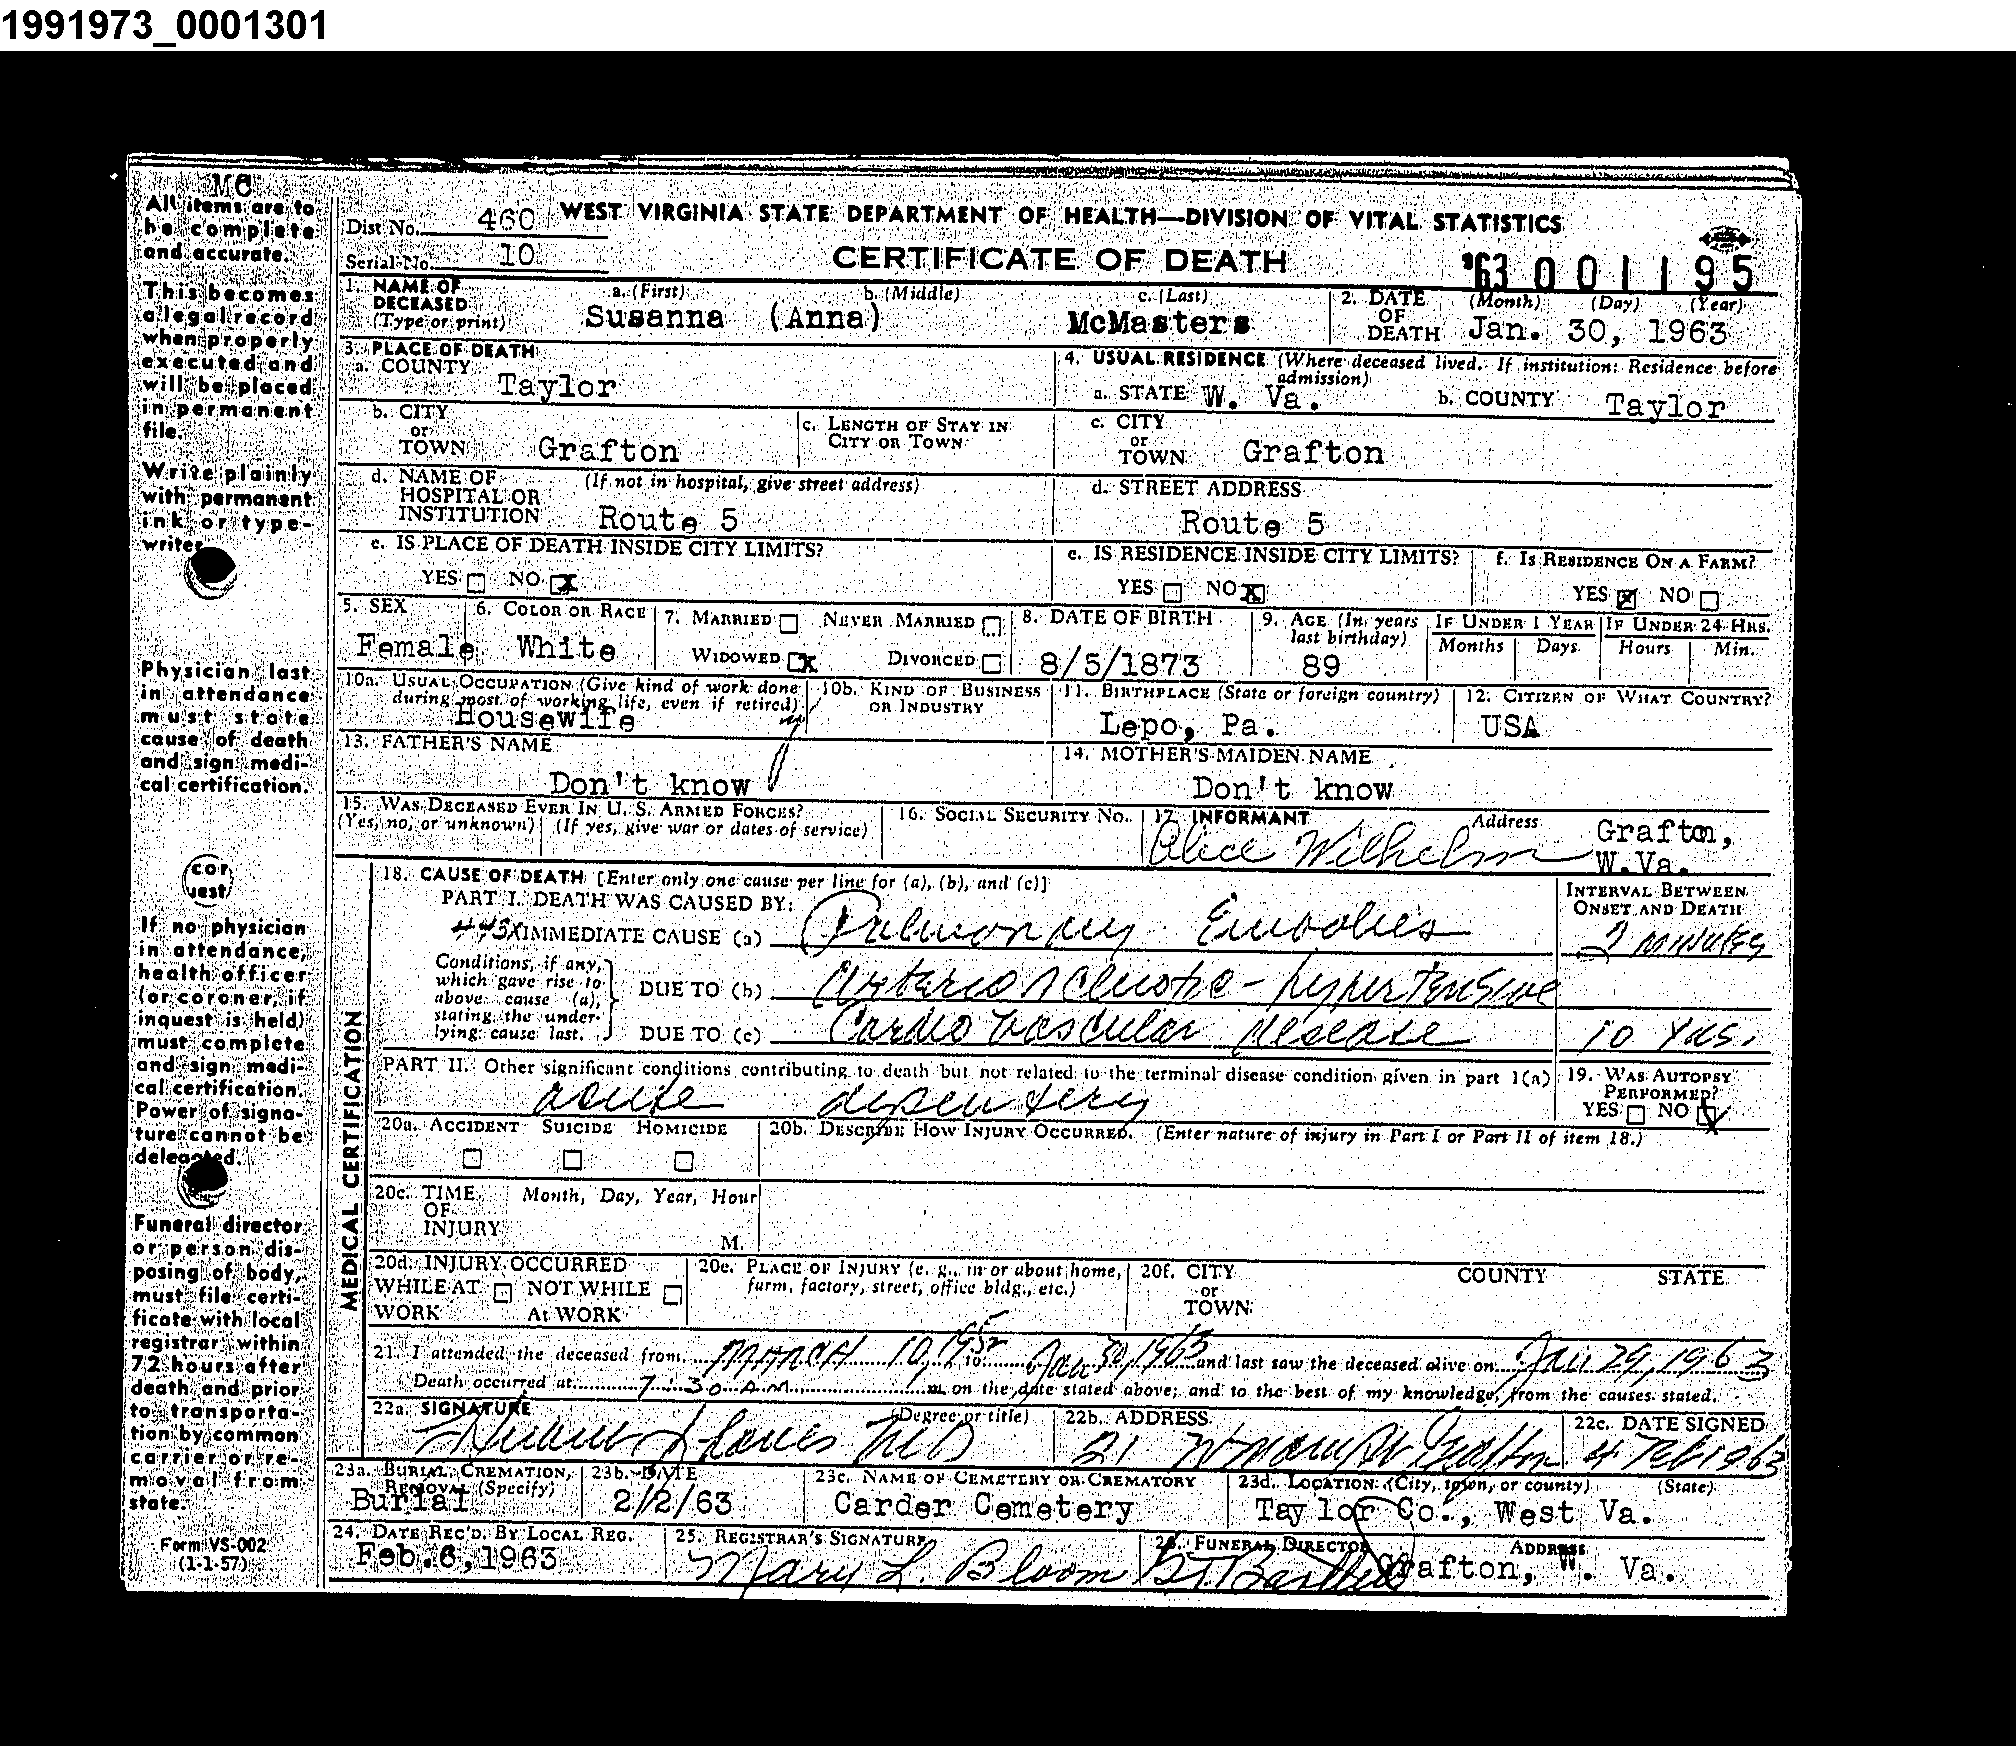 1991973_0001301
MC
All items are to
be complete
and accurate.
This becomes
a legal record
when properly
executed and
will be placed
in permanent
file.
Write plainly
with permanent
ink or type-
writer
Physician last
in attendance
must state
cause of death
and sign medi-
cal certification.
cor
uest
If no physician
in attendance,
health officer
(or coroner, if
inquest is held)
must complete
and sign medi-
cal certification.
Power of signa-
ture cannot be
delegated.
Funeral director
or person dis-
posing of body,
must file certi-
ficate with local
registrar within
72 hours after
death and prior
to transporta-
tion by common
carrier or re-
moval from
state.
Form VS-002
(1-1-57)
Dist No. 460 WEST VIRGINIA STATE DEPARTMENT OF HEALTH—DIVISION OF VITAL STATISTICS
Serial No. 10 CERTIFICATE OF DEATH '63 001195
1. NAME OF DECEASED (Type or print) a. (First) Susanna b. (Middle) (Anna) c. (Last) McMasters 2. DATE OF DEATH (Month) (Day) (Year) Jan. 30, 1963
3. PLACE OF DEATH
a. COUNTY Taylor
4. USUAL RESIDENCE (Where deceased lived. If institution: Residence before admission)
a. STATE W. Va. b. COUNTY Taylor
b. CITY or TOWN Grafton c. LENGTH OF STAY IN CITY OR TOWN
c. CITY or TOWN Grafton
d. NAME OF HOSPITAL OR INSTITUTION (If not in hospital, give street address) Route 5
d. STREET ADDRESS Route 5
e. IS PLACE OF DEATH INSIDE CITY LIMITS? YES NO X
e. IS RESIDENCE INSIDE CITY LIMITS? YES NO X f. IS RESIDENCE ON A FARM? YES X NO
5. SEX Female 6. COLOR OR RACE White 7. MARRIED NEVER MARRIED WIDOWED X DIVORCED 8. DATE OF BIRTH 8/5/1873 9. AGE (In years last birthday) 89 IF UNDER 1 YEAR Months Days IF UNDER 24 HRS. Hours Min.
10a. USUAL OCCUPATION (Give kind of work done during most of working life, even if retired) Housewife 10b. KIND OF BUSINESS OR INDUSTRY 11. BIRTHPLACE (State or foreign country) Lepo, Pa. 12. CITIZEN OF WHAT COUNTRY? USA
13. FATHER'S NAME Don't know 14. MOTHER'S MAIDEN NAME Don't know
15. WAS DECEASED EVER IN U. S. ARMED FORCES? (Yes, no, or unknown) (If yes, give war or dates of service) 16. SOCIAL SECURITY NO. 17. INFORMANT Alice Wilhelm Address Grafton, W.Va.
MEDICAL CERTIFICATION
18. CAUSE OF DEATH [Enter only one cause per line for (a), (b), and (c)] INTERVAL BETWEEN ONSET AND DEATH
PART I. DEATH WAS CAUSED BY:
443X IMMEDIATE CAUSE (a) Pulmonary Embolies 2 minutes
Conditions, if any, which gave rise to above cause (a), stating the under-lying cause last.
DUE TO (b) Arterio sclerotic - hypertensive
DUE TO (c) Cardio vascular disease 10 yrs.
PART II. Other significant conditions contributing to death but not related to the terminal disease condition given in part 1(a) acute desentery 19. WAS AUTOPSY PERFORMED? YES NO X
20a. ACCIDENT SUICIDE HOMICIDE 20b. DESCRIBE HOW INJURY OCCURRED. (Enter nature of injury in Part I or Part II of item 18.)
20c. TIME OF INJURY Month, Day, Year, Hour M.
20d. INJURY OCCURRED WHILE AT WORK NOT WHILE AT WORK 20e. PLACE OF INJURY (e. g., in or about home, farm, factory, street, office bldg., etc.) 20f. CITY or TOWN COUNTY STATE
21. I attended the deceased from March 10, 1952 to Jan 30, 1963 and last saw the deceased alive on Jan 29, 1963
Death occurred at 7:30 A.M. m. on the date stated above; and to the best of my knowledge, from the causes stated.
22a. SIGNATURE (Degree or title) MD 22b. ADDRESS 21 W Main St Grafton 22c. DATE SIGNED 4 Feb 1963
23a. BURIAL, CREMATION, REMOVAL (Specify) Burial 23b. DATE 2/2/63 23c. NAME OF CEMETERY OR CREMATORY Carder Cemetery 23d. LOCATION (City, town, or county) (State) Taylor Co., West Va.
24. DATE REC'D. BY LOCAL REG. Feb.6,1963 25. REGISTRAR'S SIGNATURE Mary L. Bloom 26. FUNERAL DIRECTOR ADDRESS Grafton, W. Va.